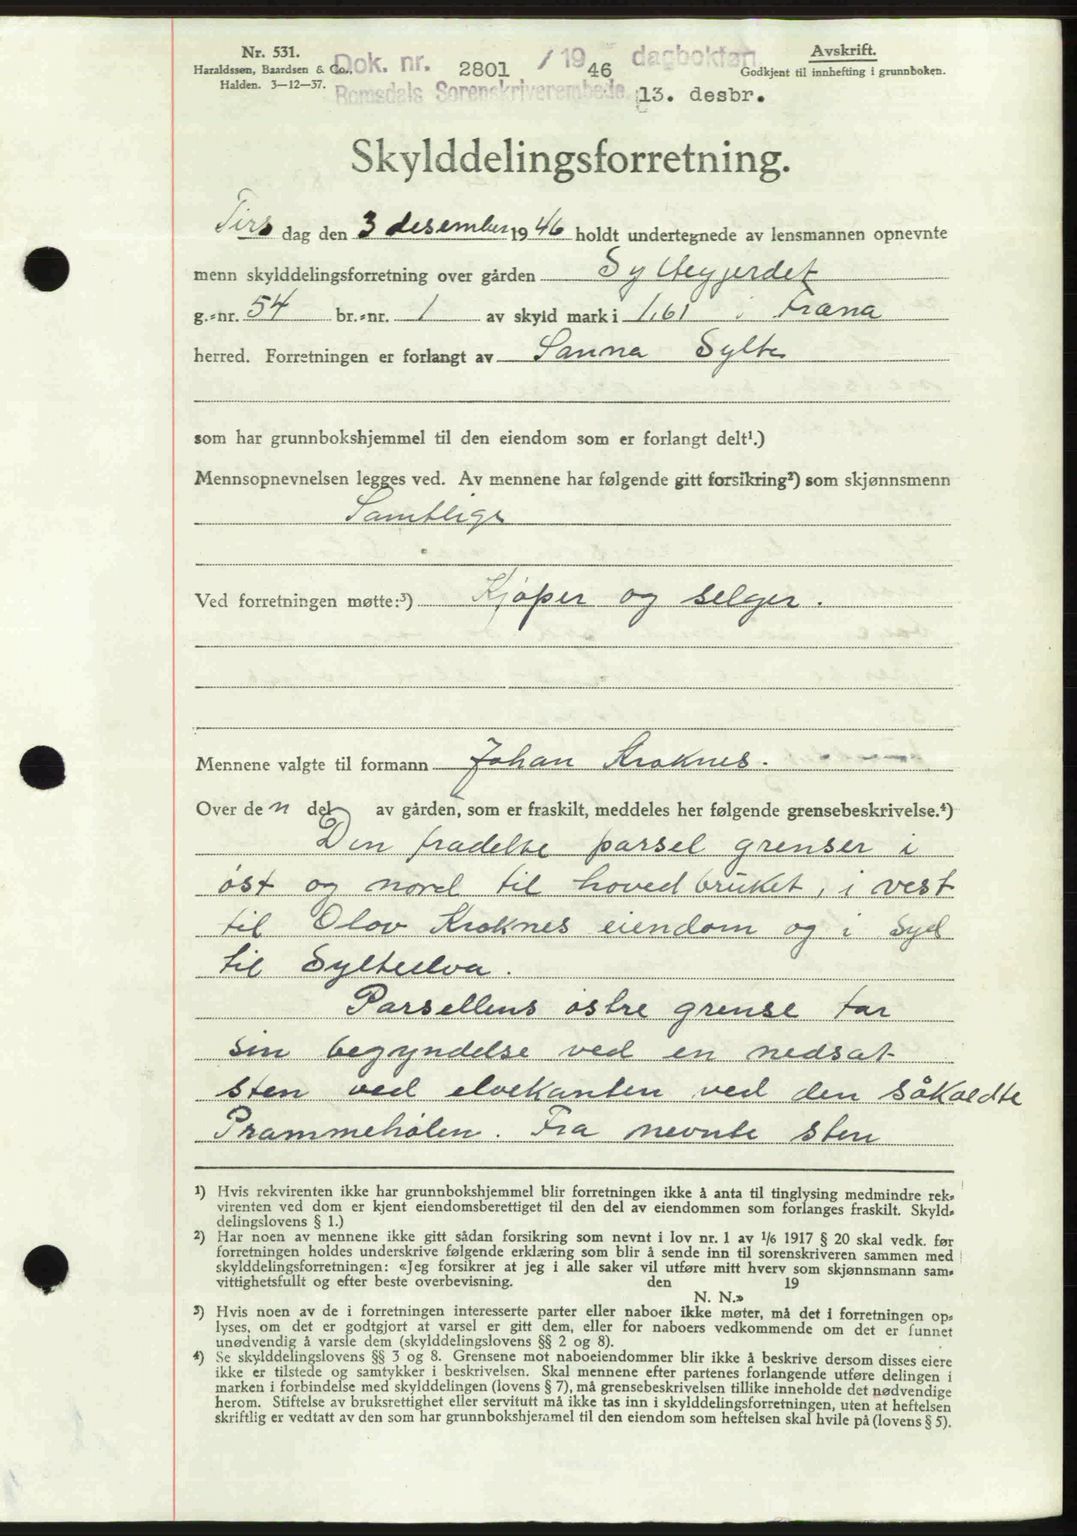 Nr. 531.
Haraldssen, Baardsen & Co.,
Halden. 3—12—37.
Dok. nr. 2801 / 19 46 dagbokten
Romsdals Sorenskriverembede. 13. desbr.
Avskrift.
Godkjent til innhefting i grunnboken.
Skylddelingsforretning.
Tirs dag den 3 desember 19 46 holdt undertegnede av lensmannen opnevnte
menn skylddelingsforretning over gården Syltegjerdet
g.=nr. 54 br.=nr. 1 av skyld mark i 1,61 i Fræna
herred. Forretningen er forlangt av Sanna Sylte
som har grunnbokshjemmel til den eiendom som er forlangt delt¹.)
Mennsopnevnelsen legges ved. Av mennene har følgende gitt forsikring²) som skjønnsmenn
Samtlige
Ved forretningen møtte:³) Kjøper og selger.
Mennene valgte til formann Johan Kroknes.
Over de n del av gården, som er fraskilt, meddeles her følgende grensebeskrivelse.⁴)
Den fradelte parsel grenser i
øst og nord til hovedbruket, i vest
til Olav Kroknes eiendom og i Syd
til Sylteelva.
Parsellens østre grense tar
sin begyndelse ved en nedsat
sten ved elvekanten ved den såkaldte
Prammehølen. Fra nevnte sten
¹) Hvis rekvirenten ikke har grunnbokshjemmel blir forretningen ikke å anta til tinglysing medmindre rek=
virenten ved dom er kjent eiendomsberettiget til den del av eiendommen som forlanges fraskilt. Skyld=
delingslovens § 1.)
²) Har noen av mennene ikke gitt sådan forsikring som nevnt i lov nr. 1 av ¹/6 1917 § 20 skal vedk. før
forretningen holdes underskrive følgende erklæring som blir å sende inn til sorenskriveren sammen med
skylddelingsforretningen: «Jeg forsikrer at jeg i alle saker vil utføre mitt hverv som skjønnsmann sam=
vittighetsfullt og efter beste overbevisning. den 19
N. N.»
³) Hvis noen av de i forretningen interesserte parter eller naboer ikke møter, må det i forretningen op=
lyses, om det er godtgjort at varsel er gitt dem, eller for naboers vedkommende om det er funnet
unødvendig å varsle dem (skylddelingslovens §§ 2 og 8).
⁴) Se skylddelingslovens §§ 3 og 8. Grensene mot naboeiendommer blir ikke å beskrive dersom disses eiere
ikke er tilstede og samtykker i beskrivelsen. Skal mennene efter partenes forlangende utføre delingen i
marken i forbindelse med skylddelingen (lovens § 7), må grensebeskrivelsen tillike inneholde det nødvendige
herom. Stiftelse av bruksrettighet eller servitutt må ikke tas inn i skylddelingsforretningen, uten at heftelsen
skriftlig er vedtatt av den som har grunnbokshjemmel til den eiendom som heftelsen skal hvile på (lovens § 5).